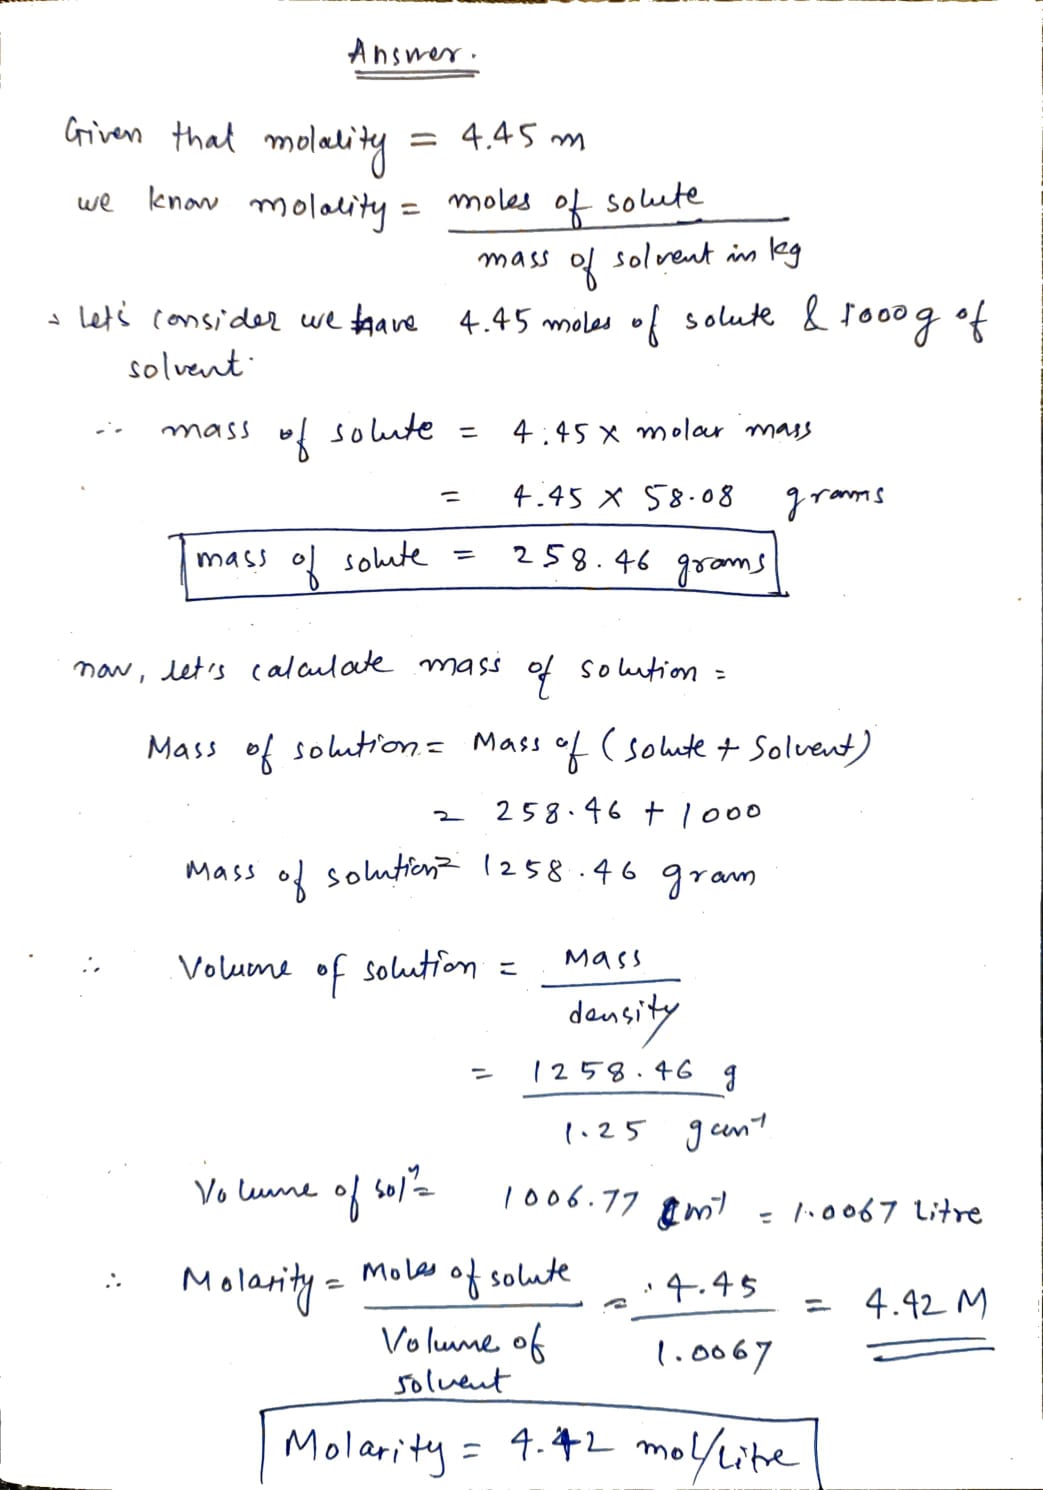 Answer.
Given that molality = 4.45 m
we know molality = moles of solute
mass of solvent in kg
let's consider we have 4.45 moles of solute & 1000g of
solvent.
∴ mass of solute = 4.45 x molar mass
= 4.45 x 58.08 grams
mass of solute = 258.46 grams
now, let's calculate mass of solution =
Mass of solution = Mass of (solute + Solvent)
= 258.46 + 1000
Mass of solution = 1258.46 gram
∴ Volume of solution = Mass
density
= 1258.46 g
1.25 g
Volume of solⁿ = 1006.77 = 1.0067 Litre
∴ Molarity = Moles of solute = 4.45 = 4.42 M
Volume of 1.0067
solvent
Molarity = 4.42 mol/Litre